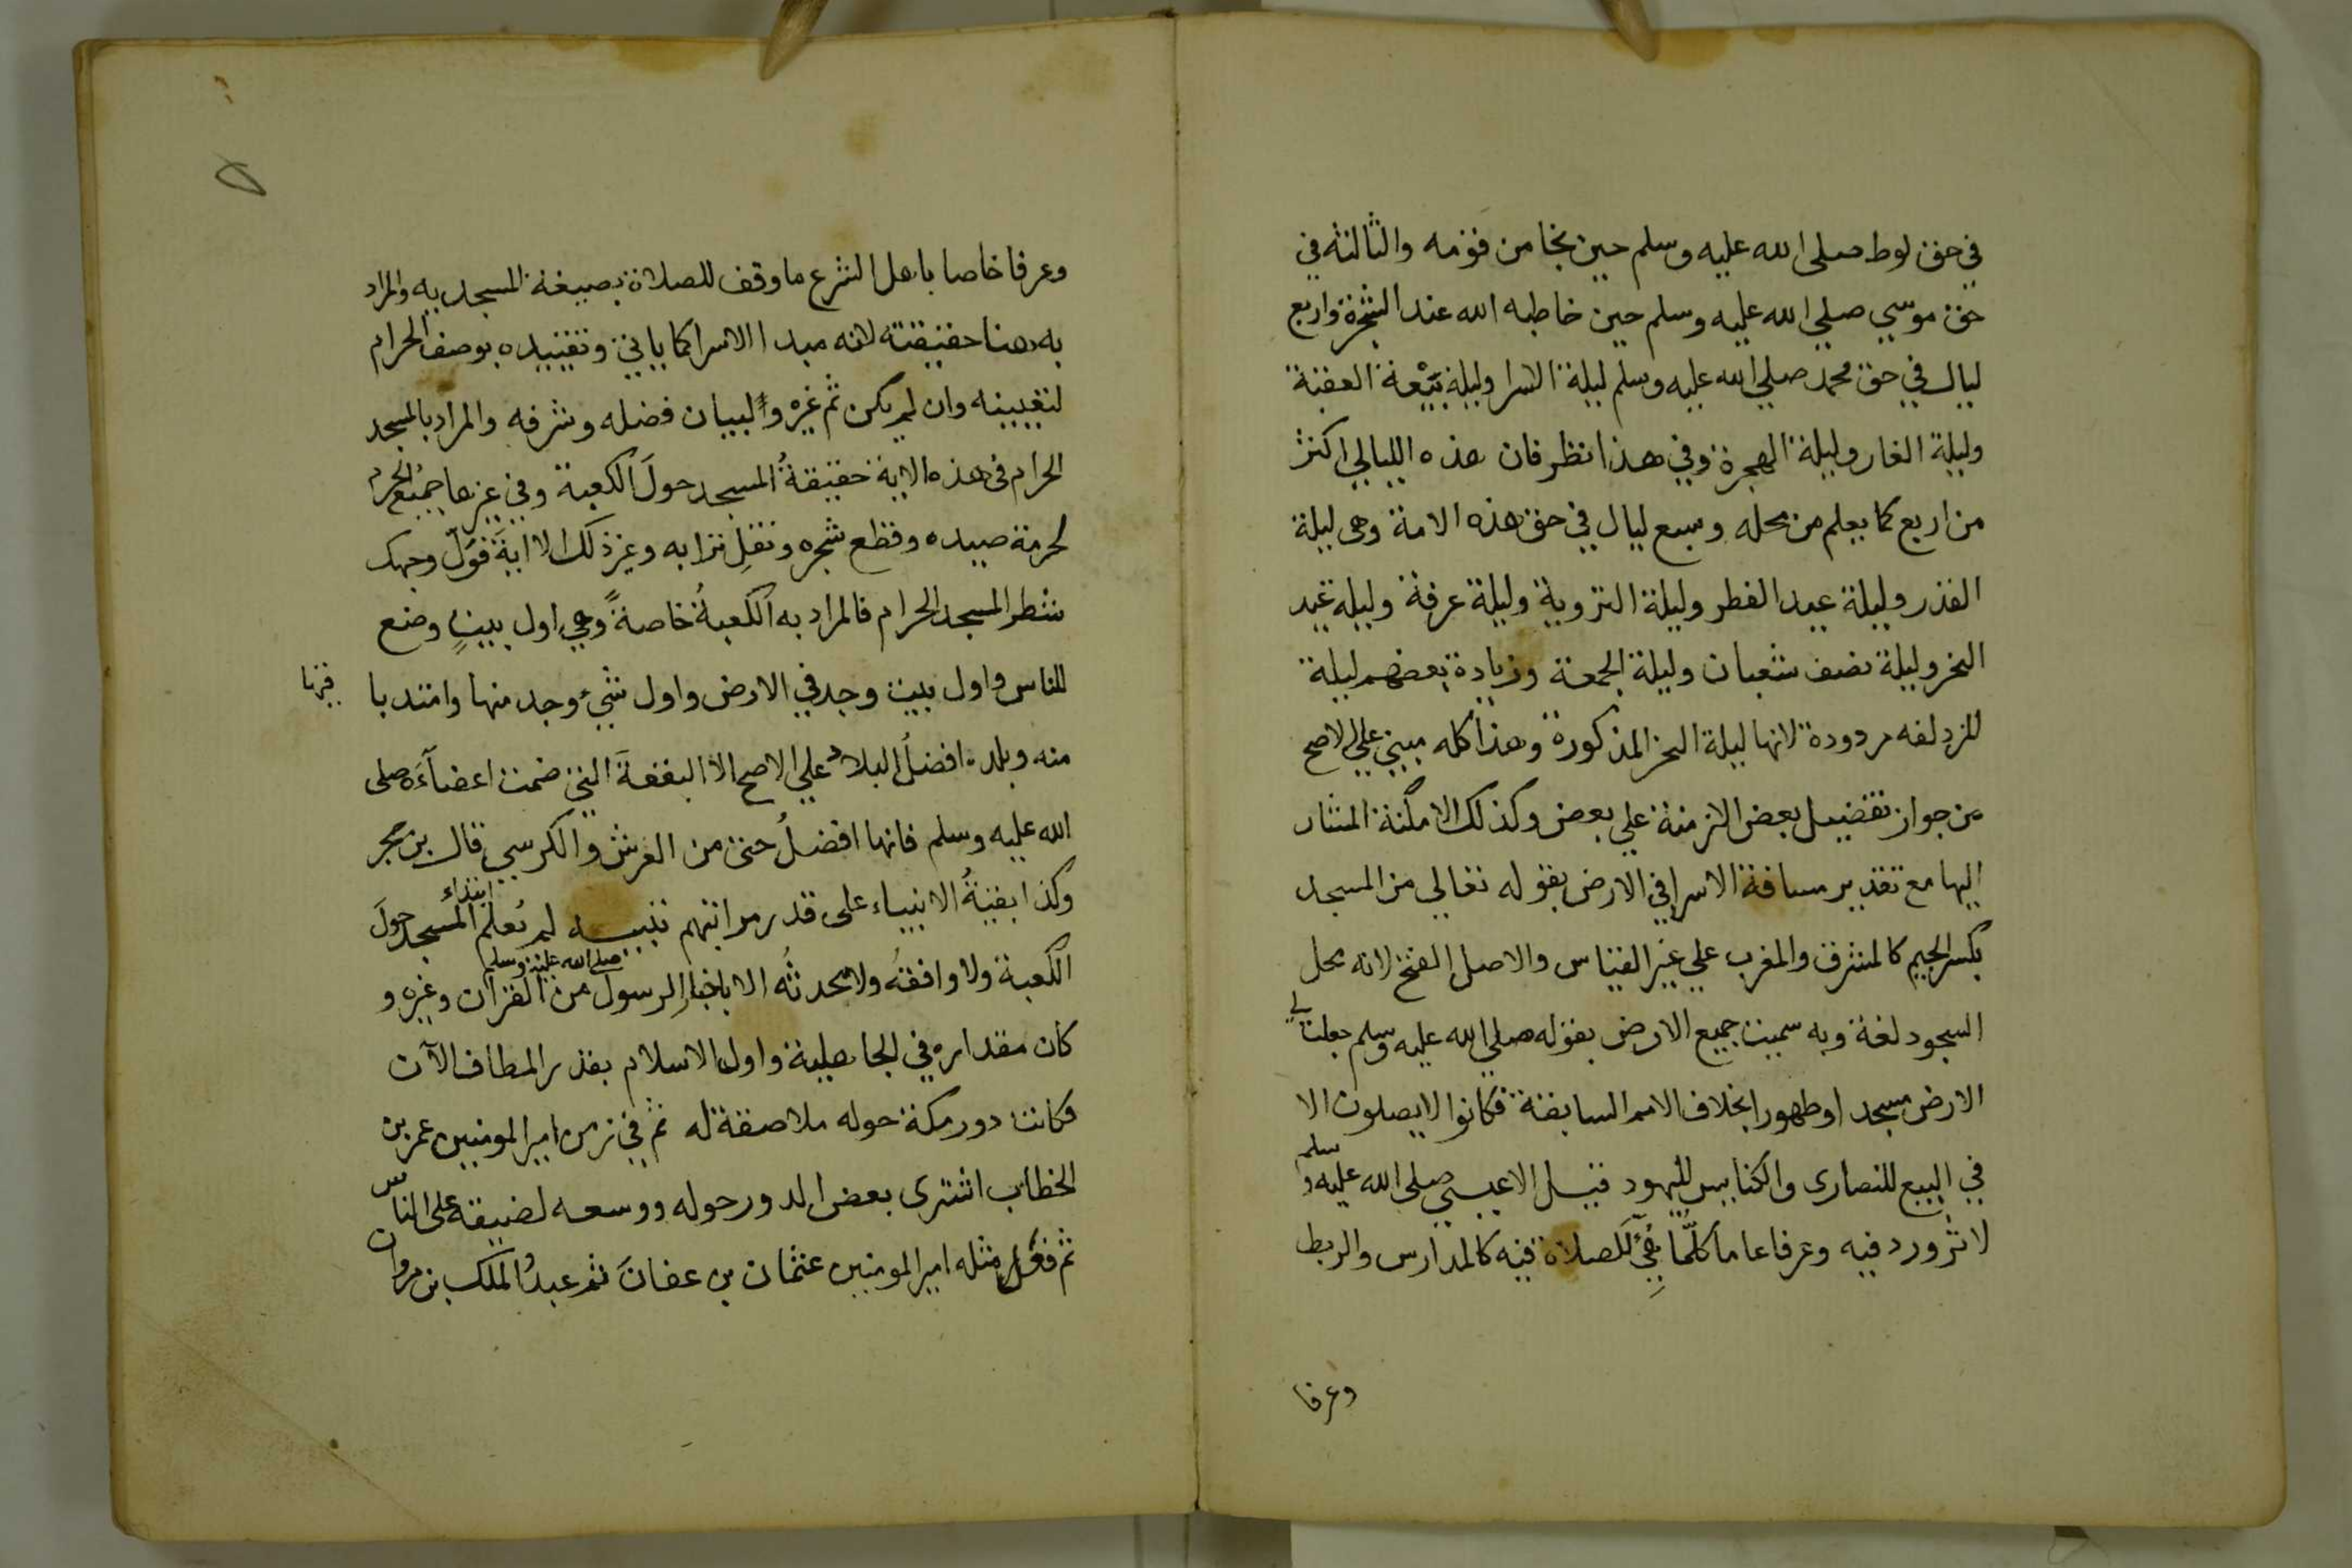 في حق لوط صلى الله عليه وسلم حين نجا من قومه والثالثه في
حق موسي صلي الله عليه وسلم حين خاطبه الله عند الشجرة واربع
ليال في حق محمد صلي الله عليه وسلم ليلة الاسرا وليلة بَيْعة العقبة
وليلة الغار وليلة الهجرة وفي هذا نظر فان هذه الليالي اكثر
من اربع كما يعلم من محله وسبع ليال في حق هذه الامة وهى ليلة
القدر وليلة عيد الفطر وليلة التروية وليلة عرفة وليله عيد
النحر وليلة نصف شعبان وليلة الجمعة وزيادة بعضهم ليلة
المزدلفه مردودة لانها ليلة النحر المذكورة وهذا كله مبني علي الاصح
من جواز تفضيل بعض الازمنة علي بعض وكذلك الامكنة المشار
اليها مع تقدير مسافة الاسرا في الارض بقوله تعالي من المسجد
بكسر الجيم كالمشرق والمغرب علي غير القياس والاصل الفتح لانه محل
السجود لغة وبه سميت جميع الارض بقوله صلي الله عليه وسلم جعلت لي
الارض مسجدا وطهورا بخلاف الامم السابقة فكانوا لا يصلون الا
في البيع للنصارى والكنايس لليهود قيل الا عيسي صلى الله عليه وسلم
لاثر ورد فيه وعرفا عاما كلّما بُنِيَ للصلاة فيه كالمدارس والربط
وعرفا
وعرفا خاصا باهل الشرع ما وقف للصلاة بصيغة المسجديه والمراد
به هنا حقيقته لانه مبدا الاسرا كما ياتي وتقييده بوصف الحرام
لتعيينه وان لم يكن ثم غيره او لبيان فضله وشرفه والمراد بالمسجد
الحرام فى هذه الاية حقيقةُ المسجد حولَ الكعبة وفي غيرها جميُع الحرم
لحرمة صيده وقطع شجره ونقلِ ترابه وغير ذلك الا ايةَ فَوَلّ وجهك
شطر المسجد الحرام فالمراد به الكعبةُ خاصةً وهي اول بيتٍ وضع
للناس واول بيت وجد في الارض واول شيء وجد منها وامتد با
قيها
منه وبلده افضلُ البلاد علي الاصح الا البقعةَ التي ضمت اعضآءَه صلى
الله عليه وسلم فانها افضلُ حتى من العرش والكرسي قال بن حجر
وكذا بقيةُ الانبياء على قدر مراتبهم تنبيه لم يُعلم ابتداء المسجد حولَ
الكعبة ولا واقفهُ ولا محدثُه الا باخبار الرسول صلى الله عليه وسلم من القران وغيره و
كان مقداره في الجاهلية واول الاسلام بقدر المطاف الآن
فكانت دور مكة حوله ملاصقة له ثم في زمن امير المومنين عمر بن
الخطاب اشترى بعض الدور حوله ووسعه لضيقه على الناس
ثم فعل مثله امير المومنين عثمان بن عفانَ ثم عبدُ الملك بن مروان